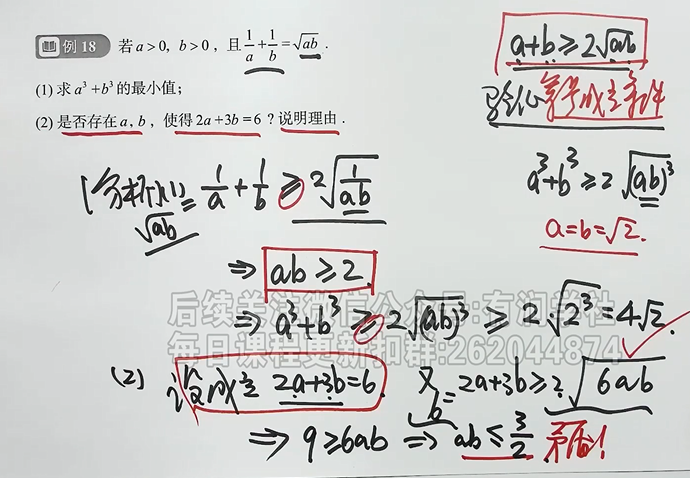 例 18 若 a>0, b>0, 且 1/a + 1/b = √ab .
(1) 求 a³+b³ 的最小值;
(2) 是否存在 a, b, 使得 2a+3b=6 ? 说明理由 .
a+b ≥ 2√ab
验证 等号成立条件
(分析)(1) √ab = 1/a + 1/b ≥ 2√(1/ab)
a³+b³ ≥ 2√(ab)³
a=b=√2.
⇒ ab ≥ 2.
⇒ a³+b³ ≥ 2√(ab)³ ≥ 2·√2³ = 4√2.
后续关注微信公众号:有润学社
每日课程更新扣群:262044874
(2) 设成立 2a+3b=6. 又 6=2a+3b ≥ 2√6ab
⇒ 9 ≥ 6ab ⇒ ab ≤ 3/2 矛盾!